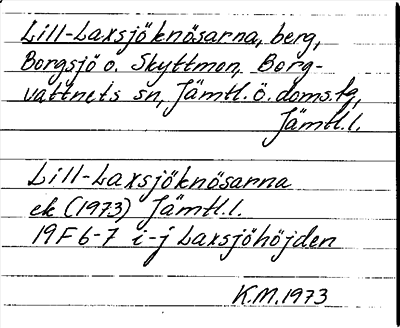 Lill-Laxsjöknösarna, berg,
Borgsjö o. Skyttmon, Borg-
vattnets sn, Jämtl. ö. doms.fg,
Jämtl.l.
Lill-Laxsjöknösarna
ek (1973) Jämtl.l.
19F 6-7 i-j Laxsjöhöjden
K.M. 1973